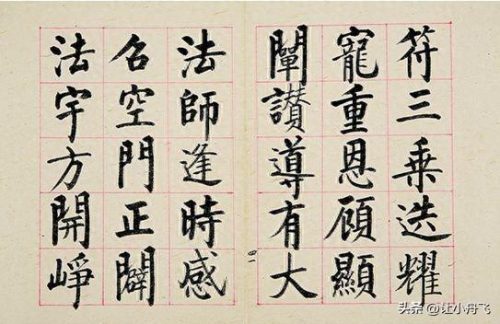 符三乘迭耀
寵重恩顾顯
闡讚導有大
法師逢時感
名空門正闢
法宇方開崢
头条 @让小丹飞